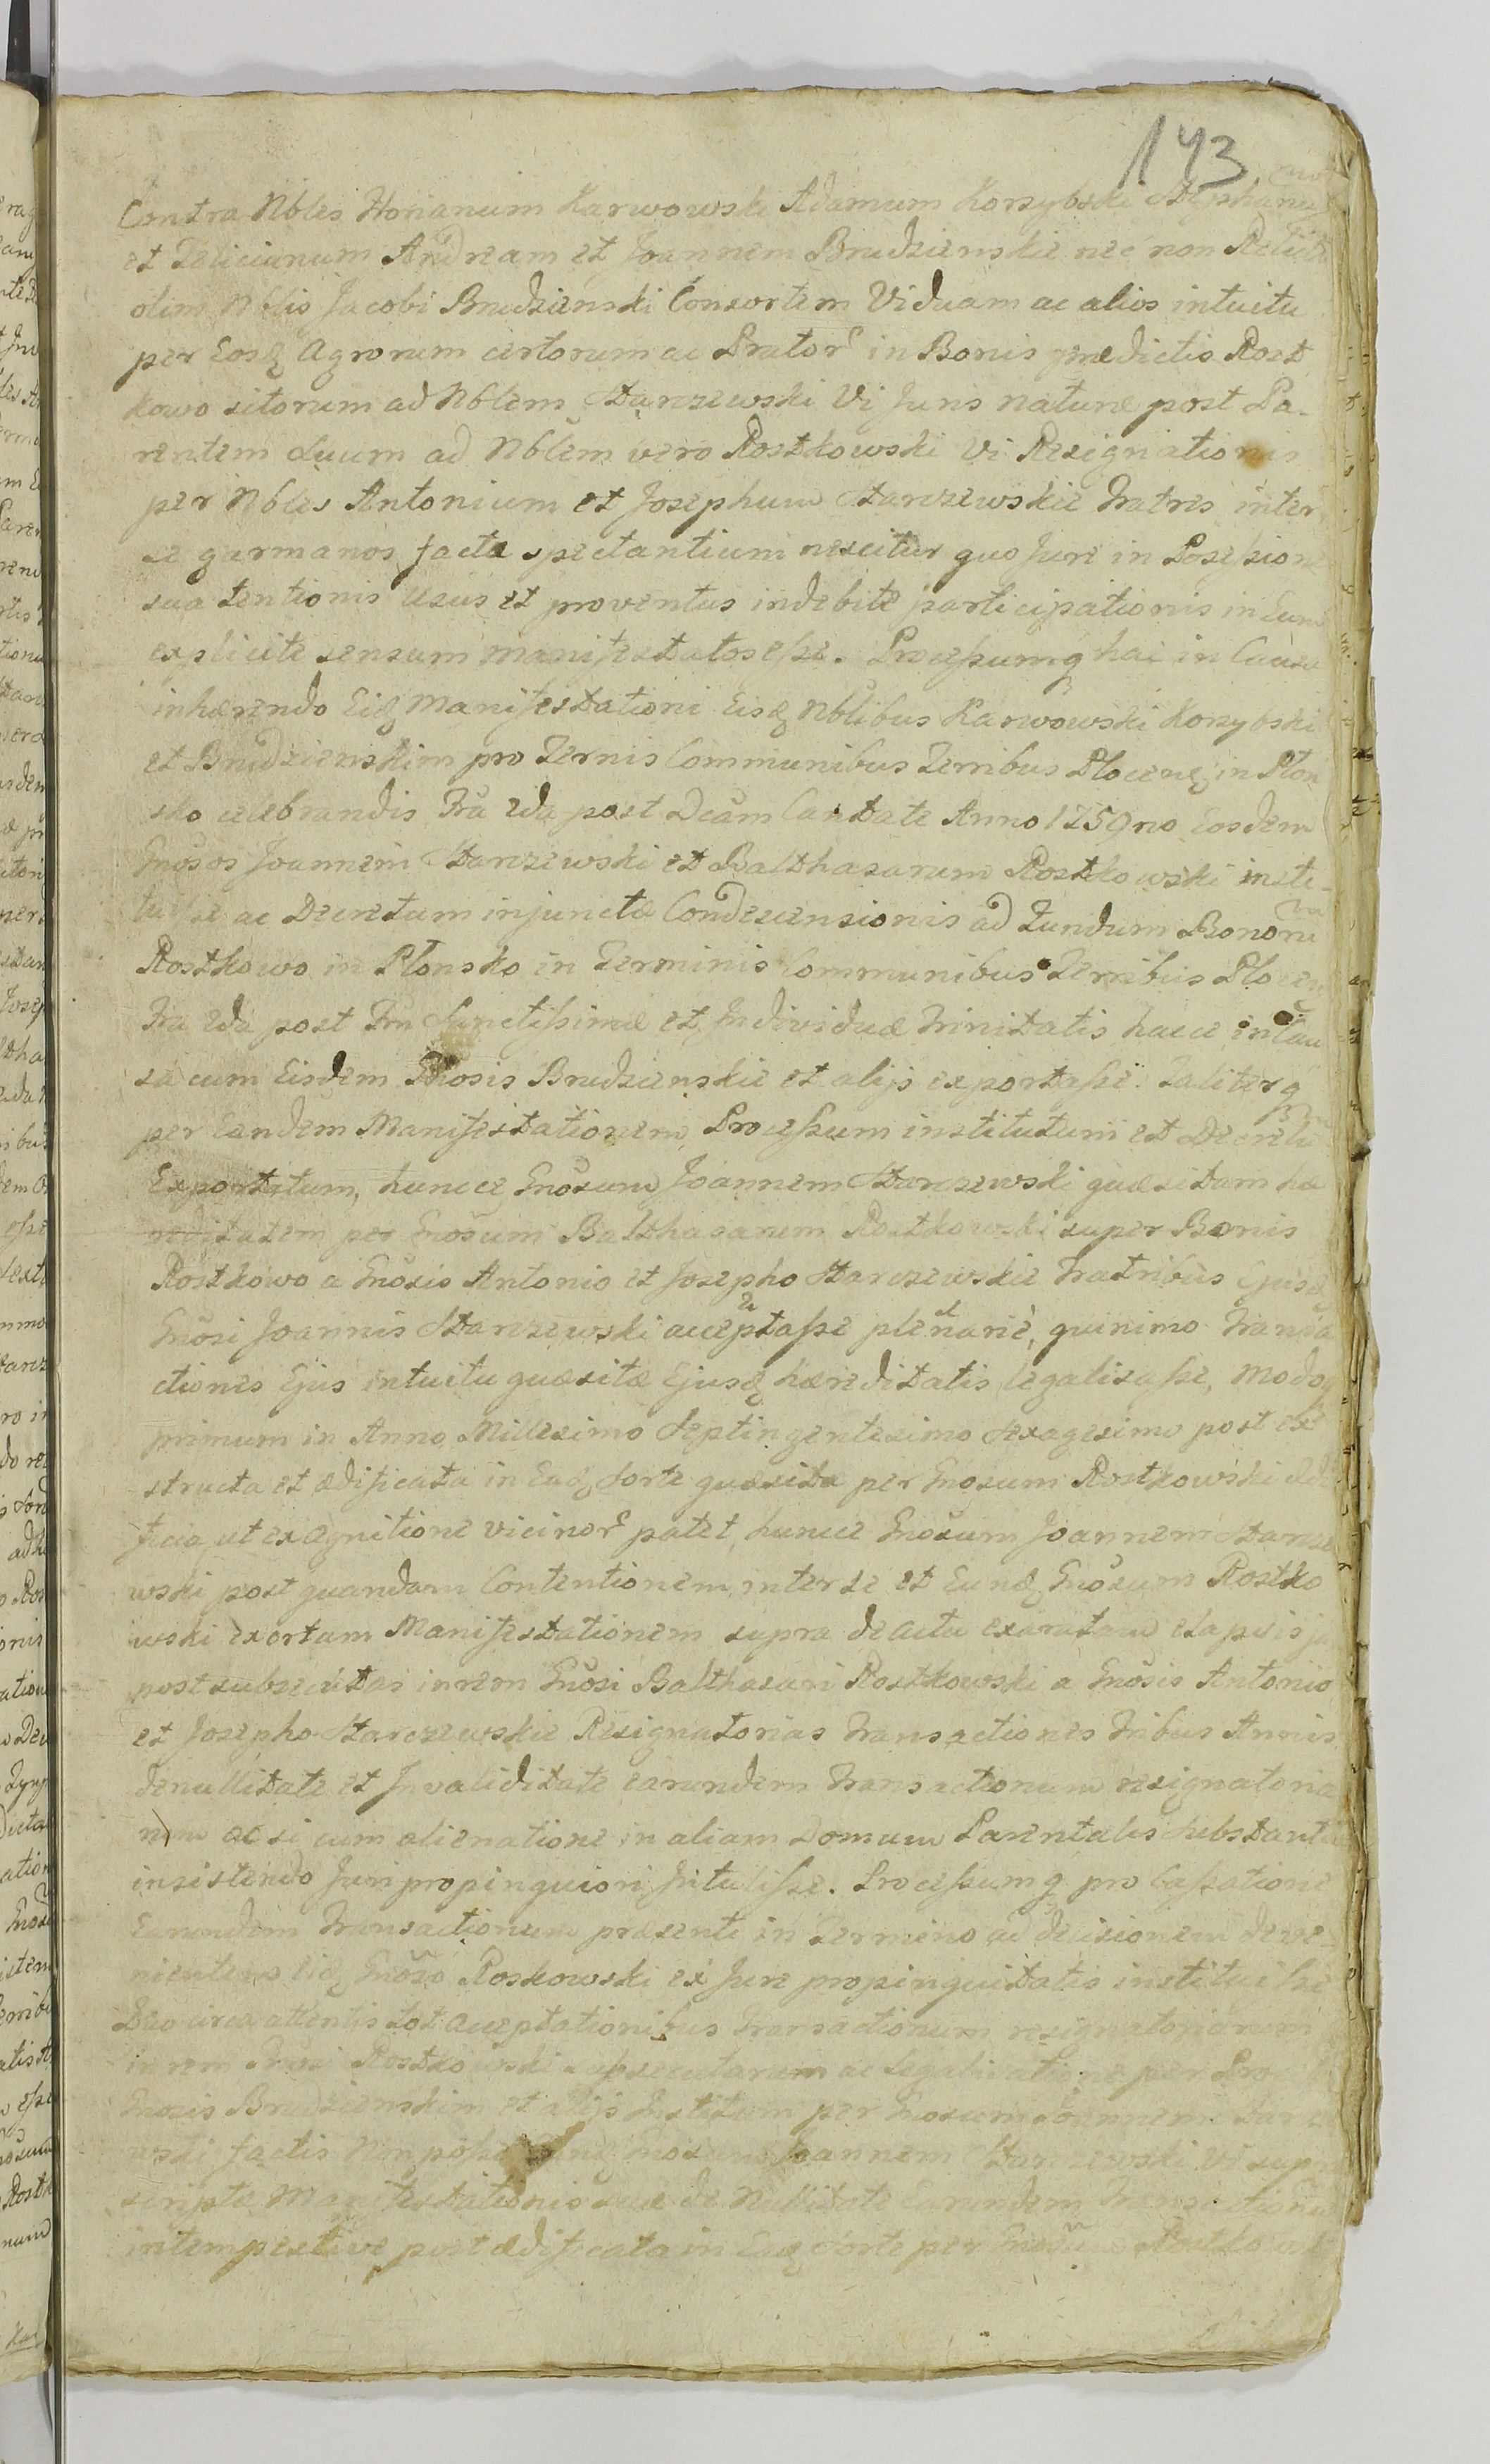 143
Contra Nbles Florianum Karwowski Adamum Korzybski Stephanum
et Felicianum Andream et Joannem Brudzienskie nec non Relictã
olim Nblis Jacobi Brudzienski Consortem Viduam ac alios intuitu
per Eosq Agrorum certorum ac Prator in Bonis prædictis Rost
kowo sitorum ad Nblem Starczewski Vi Juris naturæ post Pa-
rentem suum ad Nblem vero Rostkowski Vi Resignationis
per Nbles Antonium et Josephum Starczewskie Fratres inter
se germanos facta spectantium nescitur quo Jure in Possessione
sua tentionis usus et proventus indebite participationis in Eum
explicite sensum manifestatos esse. Processumq hac in Causa
inhærendo Eiq Manifestationi Eisq Nblibus Karwowski Korzybski
et Brudzienskim pro Ternis Communibus Terribus Plocens in Plon
sko celebrandis Fra 2da post Dcam Cantate Anno 1759no Eosdem
Gnosos Joannem Starczewski et Balthasarum Rostkowski insti-
tuisse ac Decretum injunctæ Condescensionis ad Fundum Bonorum
Rostkowo in Plonsko in Terminis Communibus Terribus Plocen
Fra 2da post Fru Sanctissimæ et Individuæ Trinitatis hacce in Cau
sa cum Eisdem Gnosis Brudzienskie et alijs exportasse. Taliterq
per Eandem Manifestationem Processum institutum et Decretu
Exportatum, huncce Gnosum Joannem Starczewski quæsitam hæ
reditatem per Gnosum Balthasarem Rostkowski super Bonis
Rostkowo a Gnosis Antonio et Josepho Starczewskie Fratribus Ejusq
Gnosi Joannis Starczewski acceptasse plenarie, quinimo Transa
ctiones Ejus intuitu quæsitæ Ejusq hæreditatis legalisasse, modoq
primum in Anno Millesimo Septingentesimo Sexagesimo post ex
structa et ædificata in Eaq Sorte quæsita per Gnosum Rostkowski Ædi
ficia ut ex agnitione vicinor patet, huncce Gnosum Joannem Starcze
wski post quandam Contentionem inter se et Eunq Gnosum Rostko
wski exortam Manifestationem supra de actu exaratam elapsis ja
post subsecutas in rem Gnosi Balthasari Rostkowski a Gnosis Antonio
et Josepho Starczewskie Resignatorias Transactiones Tribus Annis
de nullitate et Invaliditate earundem Transactionum resignatoria
rum ac si cum alienatione in aliam Domum Parentalis substantiæ
insistendo Juri propinquiori Intulisse. Processumq pro Cassatione
Earundem Transactionum præsenti in Termino ad decisionem deve-
nientem eiq Gnoso Roskowski ex Jure propinquitatis instituisse
Quo circa attentis tot acceptationibus Transactionum resignatoriarum
in rem Gnosi Rostkowski subsecutarum ac legalisatione per Process
Gnosis Brudzienskim et alijs Institum per Gnosum Joannem Starcze
wski factis Non posse Eunq Gnosum Joannem Starczewski Vi supra
scriptæ Manifestationis suæ de Nullitate Earundem Transactionu
intempestive post ædificata in Eaq Sorte per Gnosum Rostkowski